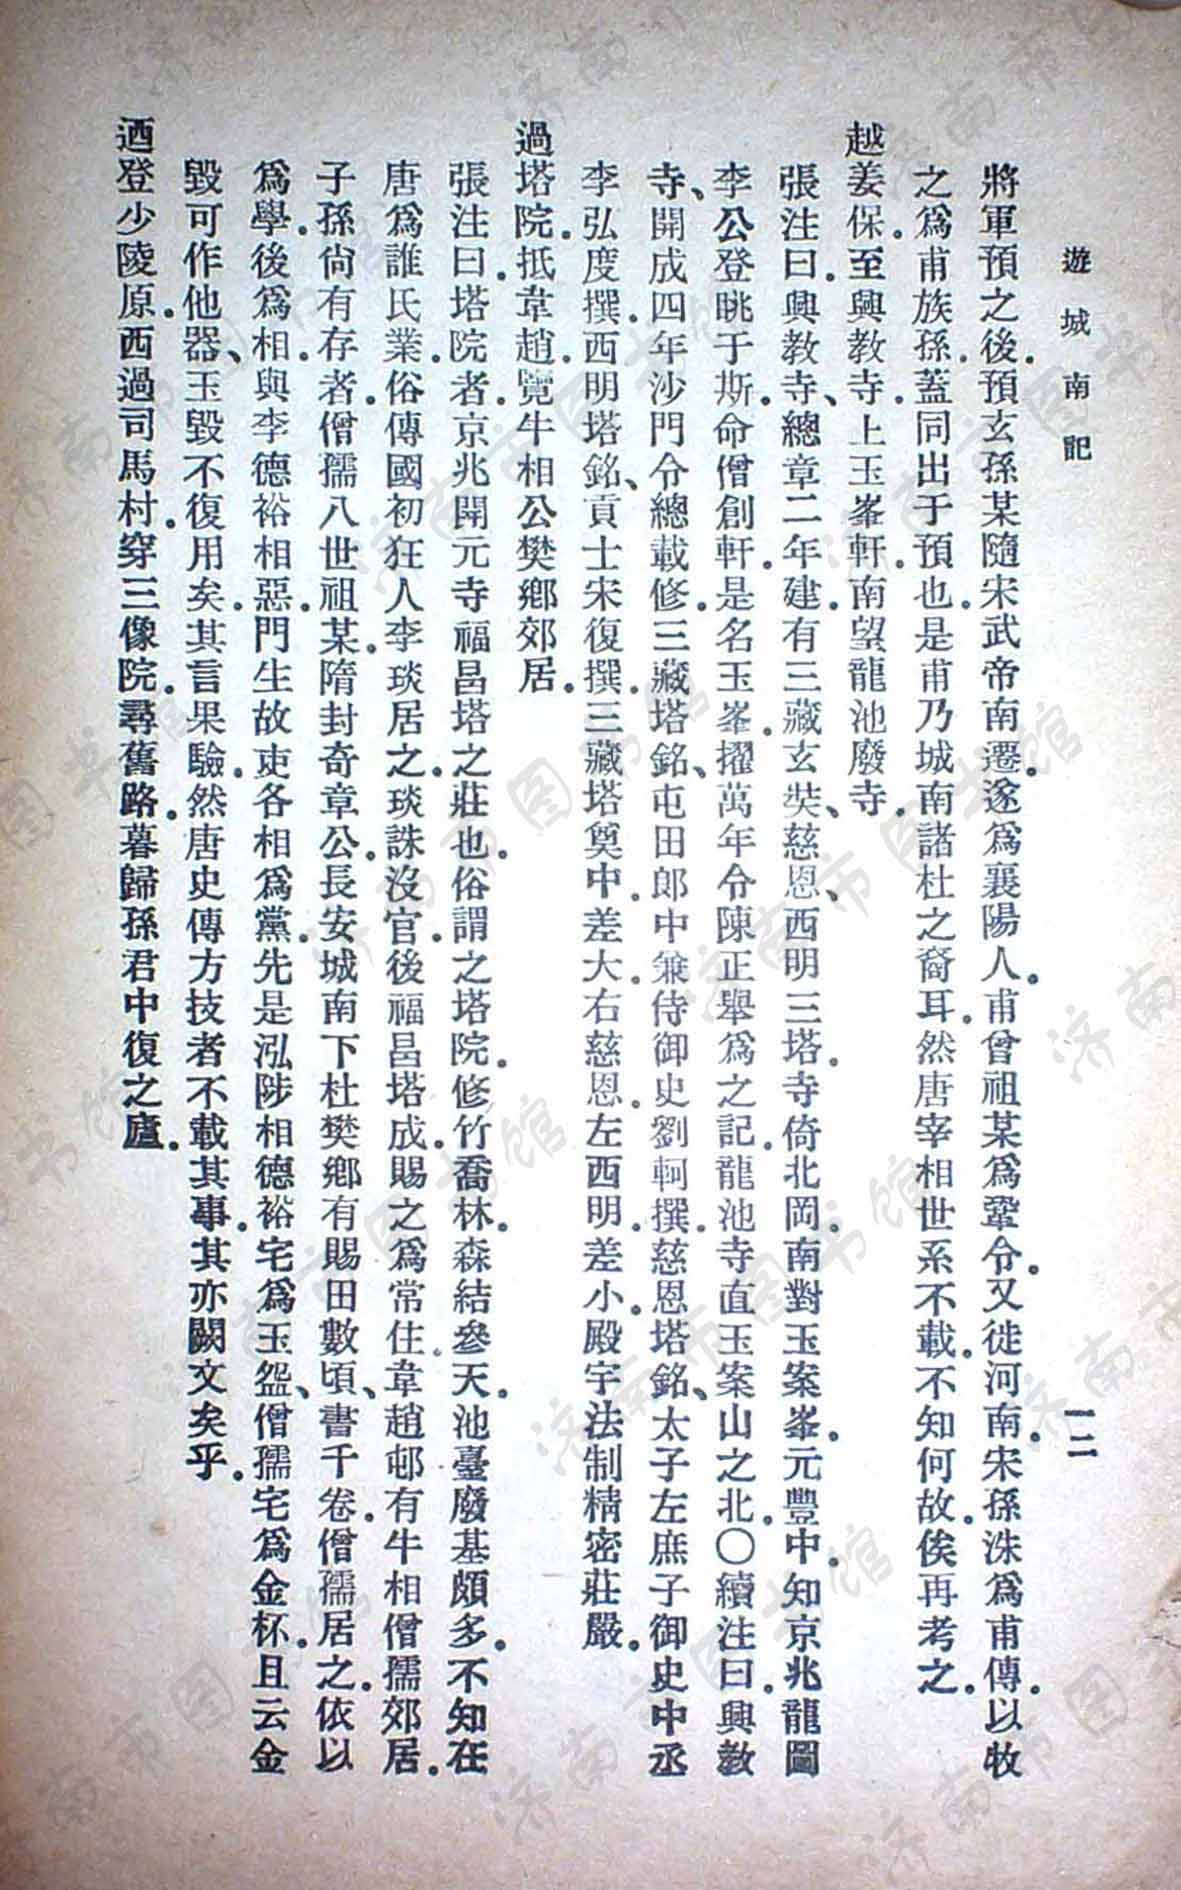 遊城南記
一二
將軍預之後。預玄孫某隨宋武帝南遷。遂爲襄陽人。甫曾祖某爲鞏令。又徙河南。宋孫洙爲甫傳。以牧
之爲甫族孫。蓋同出于預也。是甫乃城南諸杜之裔耳。然唐宰相世系不載。不知何故。俟再考之。
越姜保。至興教寺。上玉峯軒。南望龍池廢寺。
張注曰。興教寺、總章二年建。有三藏玄奘、慈恩、西明三塔。寺倚北岡。南對玉案峯。元豐中。知京兆龍圖
李公登眺于斯。命僧創軒。是名玉峯。擢萬年令陳正舉爲之記。龍池寺直玉案山之北。○續注曰。興教
寺、開成四年沙門令總載修。三藏塔銘、屯田郎中兼侍御史劉軻撰。慈恩塔銘、太子左庶子御史中丞
李弘度撰。西明塔銘、貢士宋復撰。三藏塔奠中。差大。右慈恩。左西明。差小。殿宇法制精密莊嚴。
過塔院。抵韋趙。覽牛相公樊鄉郊居。
張注曰。塔院者。京兆開元寺福昌塔之莊也。俗謂之塔院。修竹喬林。森結參天。池臺廢基頗多。不知在
唐爲誰氏業。俗傳國初狂人李琰居之。琰誅沒官。後福昌塔成。賜之爲常住。韋趙邨有牛相僧孺郊居。
子孫尙有存者。僧孺八世祖某。隋封奇章公。長安城南下杜樊鄉有賜田數頃、書千卷。僧孺居之。依以
爲學。後爲相。與李德裕相惡。門生故吏各相爲黨。先是泓陟相德裕宅爲玉盌、僧孺宅爲金杯。且云金
毀可作他器、玉毀不復用矣。其言果驗。然唐史傳方技者不載其事。其亦闕文矣乎。
迺登少陵原。西過司馬村。穿三像院。尋舊路。暮歸孫君中復之廬。